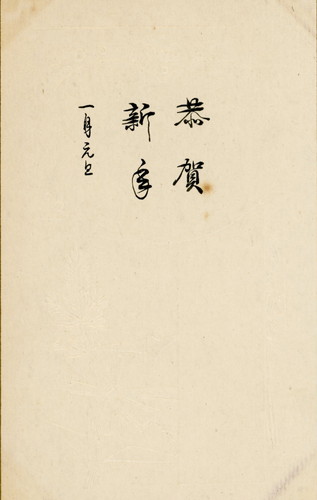 恭賀
新年
一月元旦